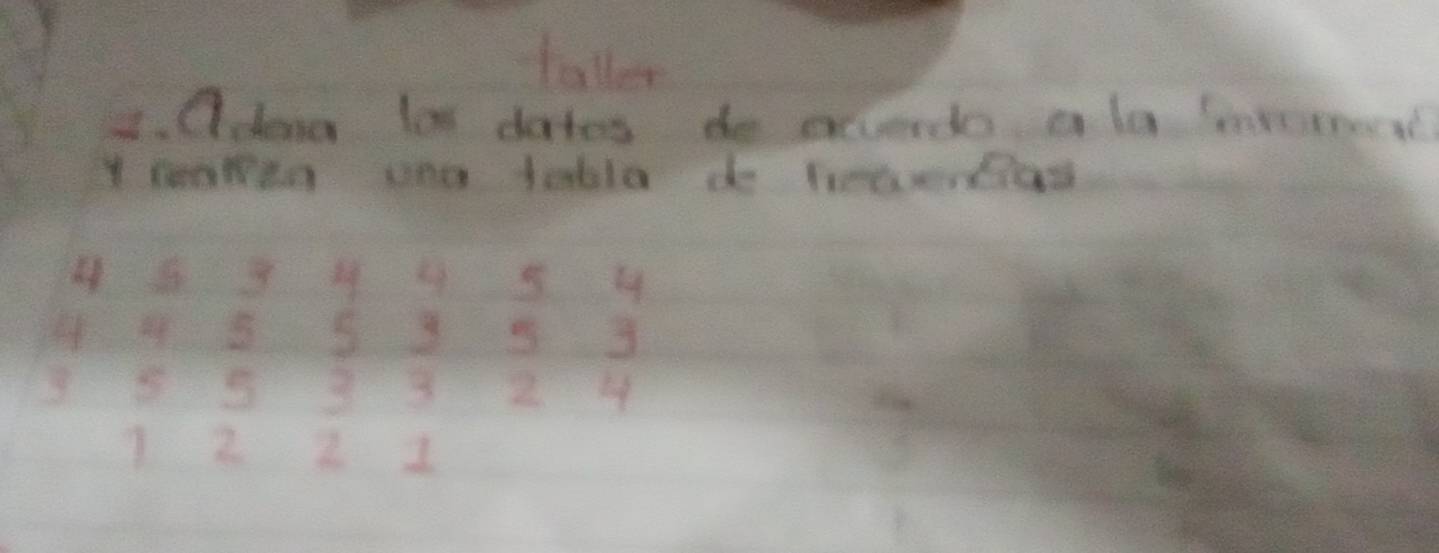 taller
1. Adona los datos de acuerdo a la
y realiza una tabla de frecuencias
4 5 3 4 4 5 4
4 4 5 5 3 5 3
3 5 5 3 3 2 4
1 2 2 1